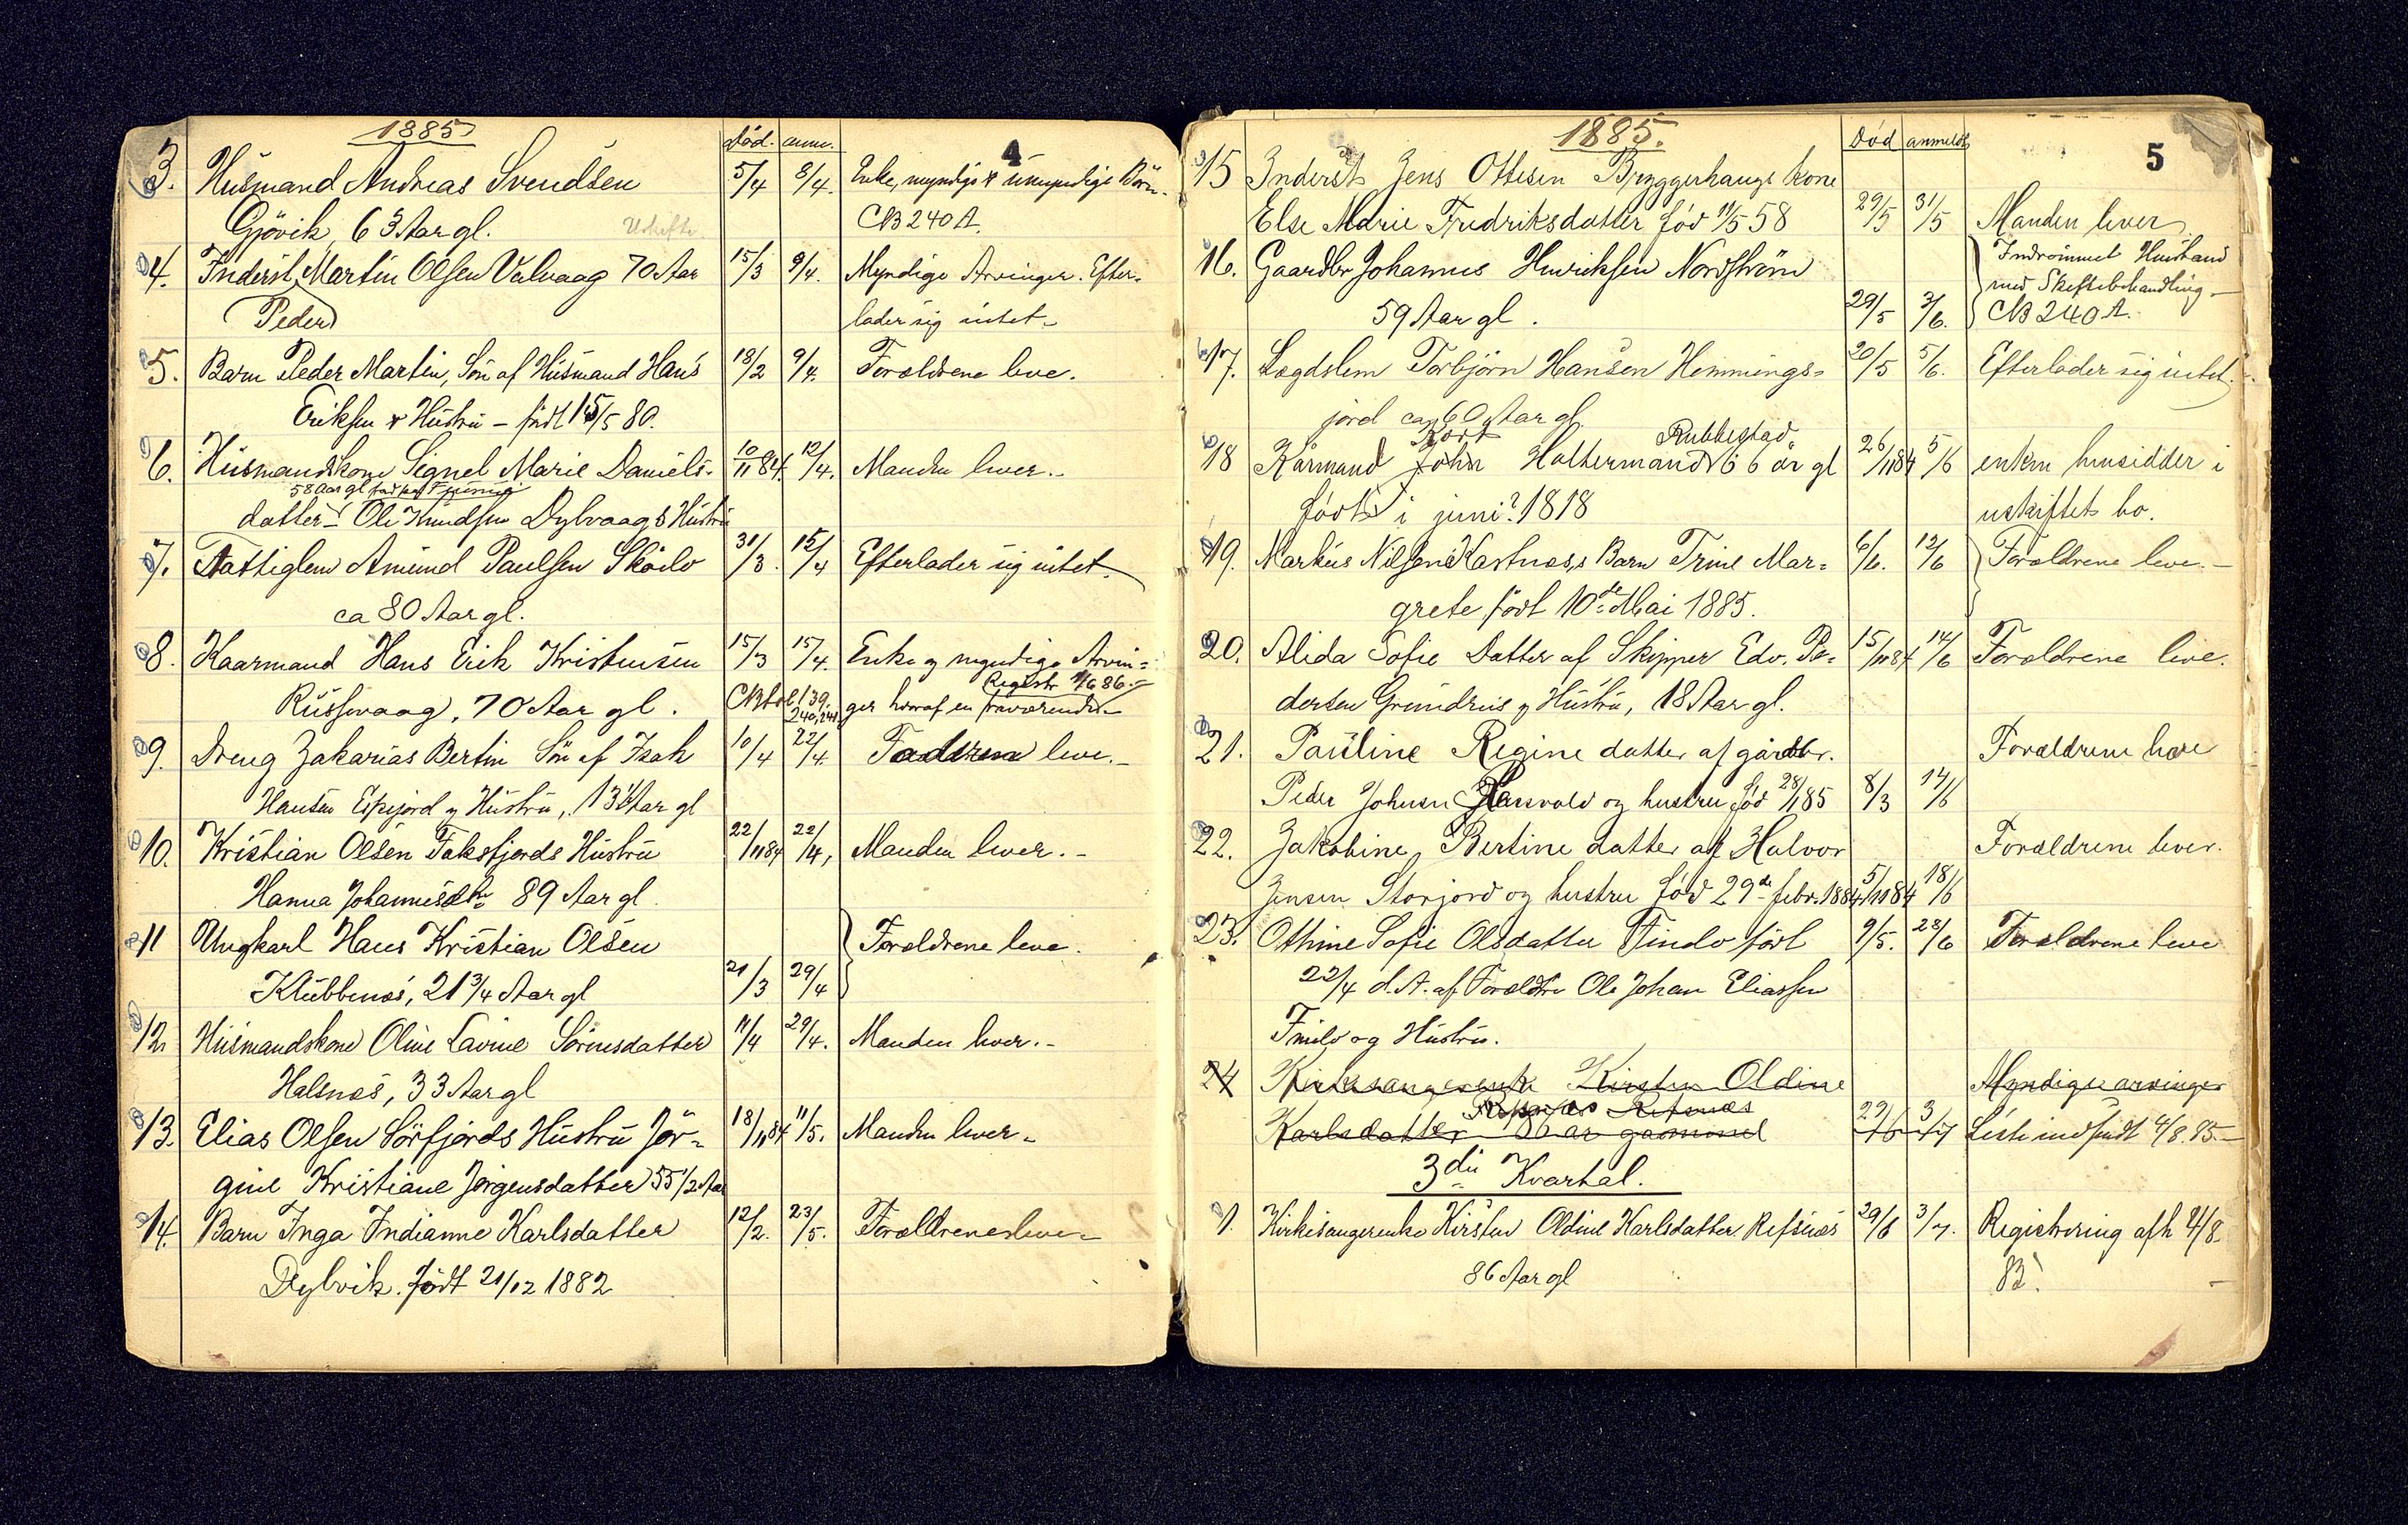 1885
Död. anm.
4
3. Husmand Andreas Svendsen 5/4 8/4. Enke, myndige & umyndige Börn.
Gjövik 63 Aar gl. Uskifte CB 240 A.
4. Inderst Martin Olsen Valvaag 70 Aar 15/3 9/4. Myndige Arvinger. Efter-
Peder lader sig intet.
5. Barn Peder Martin, Sön af Husmand Hans 18/2 9/4. Forældrene leve.
Eriksen & Hustru – födt 15/5 80.
6. Husmandskone Signel Marie Daniels- 10/11 84. 12/4. Manden lever.
58 Aar gl
datter Ole Knudsen Dylvaags Hustru
7. Fattiglem Amund Paulsen Skarlo 31/3. 15/4 Efterlader sig intet.
ca 80 Aar gl.
8. Kaarmand Hans Erik Kristensen 15/3 15/4. Enke og myndige Arvin-
Registr 1/6 86.
Russevaag, 70 Aar gl. CB fol 139. 240, 241 ger hvoraf en fraværende
9. Dreng Zakarias Bertin Sön af Isak 10/4 22/4. Faderen leve.
Hansen Espejord og Hustru, 13 Aar gl
10. Kristian Olsen Faksfjords Hustru 22/11 84 22/4, Manden lever.
Hanna Johannesdtr 89 Aar gl.
11 Ungkarl Hans Kristian Olsen Forældrene leve.
Klubbenes, 21 3/4 Aar gl 21/3 29/4
12. Husmandskone Oline Lavine Sörensdatter 11/4 29/4. Manden lever.
Halsnæs, 33 Aar gl
13. Elias Olsen Sörfjords Hustru Jör- 18/11 84 11/5. Manden lever.
gine Kristiane Jörgensdatter 55 1/2 Aar
14. Barn Inga Indianne Karlsdatter 12/2. 23/5. Forældrene leve
Dylvik. födt 21/12 1882
1885.
Död anmeldt
5
15 Inderst Jens Ottesen Bryggerhaugs kone
Else Marie Fredriksdatter Föd 11/5 58 29/5 31/5 Manden lever
16. Gaardbr Johannes Henriksen Nordström Indrömmet Husband
med Skiftebehandling.
59 Aar gl. 29/5 3/6. CB 240 A.
17. Lægdslem Torbjörn Hansen Hemmings- 20/5 5/6. Efterlader sig intet.
jord ca 60 Aar gl.
Kort Rubbestad
18 Kårmand John Holtermand 66 år gl 26/11 84 5/6 enken hensidder i
födt i juni? 1818 uskiftet bo.
19. Markus Nilsen Kastnæs's Barn Trine Mar- 6/6. 12/6 Forældrene leve.
grete födt 10de Mai 1885.
20. Alida Sofie Datter af Skipper Edv. Pe- 15/11 84 14/6 Forældrene leve.
dersen Grundnes og Hustru, 18 Aar gl.
21. Pauline Regine datter af gårdbr. Forældrene leve
Peder Johnsen Harsvold og hustru föd 28/1 85 8/3 14/6
22. Jakobine Bertine datter af Halvor Forældrene lever.
Jensen Storjord og hustru föd 29de febr. 1884 5/11 84 18/6
23. Othine Sofie Olsdatter Finlo födt 9/5. 28/6 Forældrene leve
22/4 d. A. af Forældre Ole Johan Eliassen
Finlo og Hustru.
24 Kirkesangerenke Kirsten Oldine Myndige arvinger
Refsnæs
Karlsdatter 86 år gammel 29/6 3/7 Liste indsendt 4/8. 85.
3die Kvartal.
1. Kirkesangerenke Kirsten Oldine Karlsdatter Refsnæs 29/6 3/7. Registrering afh 4/8.
86 Aar gl 85.